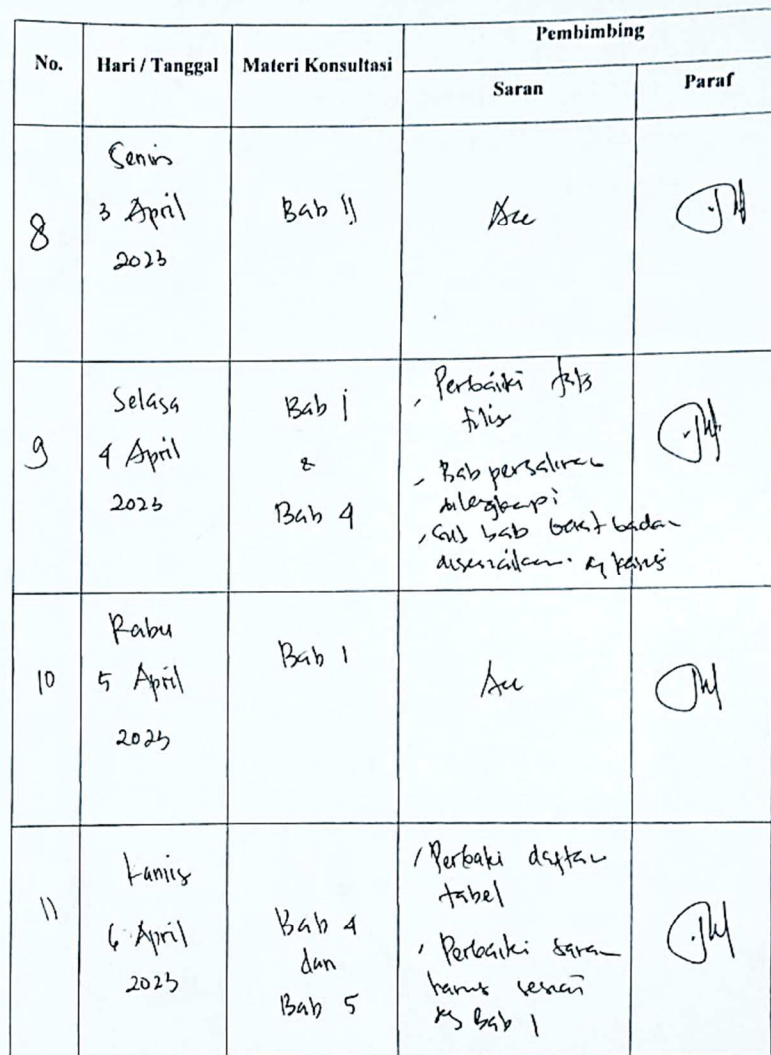 No.
Hari / Tanggal
Materi Konsultasi
Pembimbing
Saran
Paraf
8
Senin
3 April
2023
Bab II
Acc
9
Selasa
4 April
2023
Bab I
&
Bab 4
Perbaiki
Bab persalinan
dilengkapi
Sub bab berat badan
disesuaikan kasus
10
Rabu
5 April
2023
Bab 1
Acc
11
Kamis
6 April
2023
Bab 4
dan
Bab 5
Perbaki daftar
tabel
Perbaiki saran
harus sesuai
Bab 1